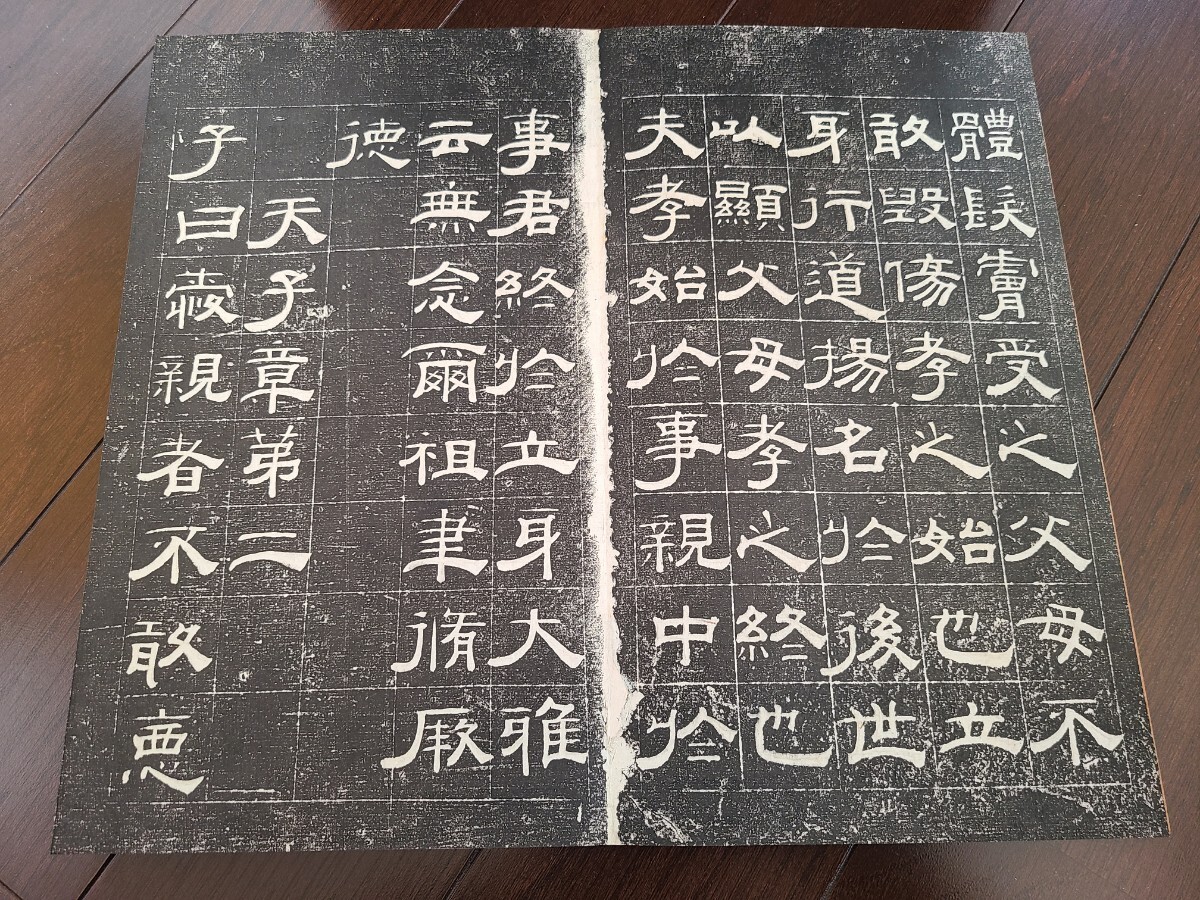 體髮膚受之父母不
敢毀傷孝之始也立
身行道揚名於後世
以顯父母孝之終也
夫孝始於事親中於
事君終於立身大雅
云無念爾祖聿脩厥
德
天子章弟二
子曰愛親者不敢惡